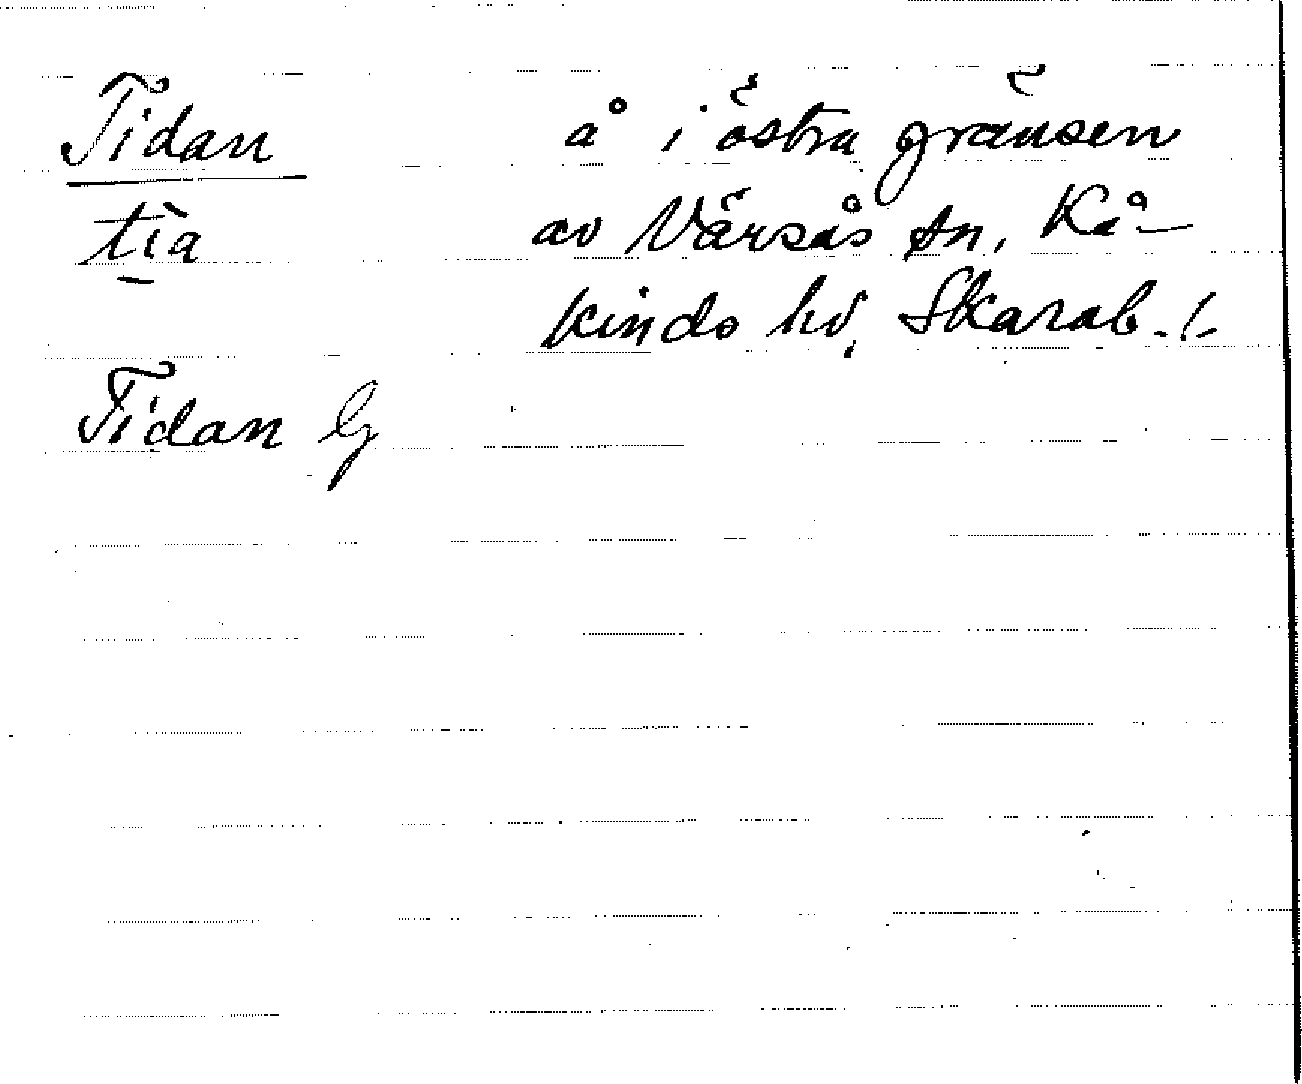 Tidan
tìa
å i östra gränsen
av Värsås sn, Kå-
kinds hd, Skarab. l.
Tidan G